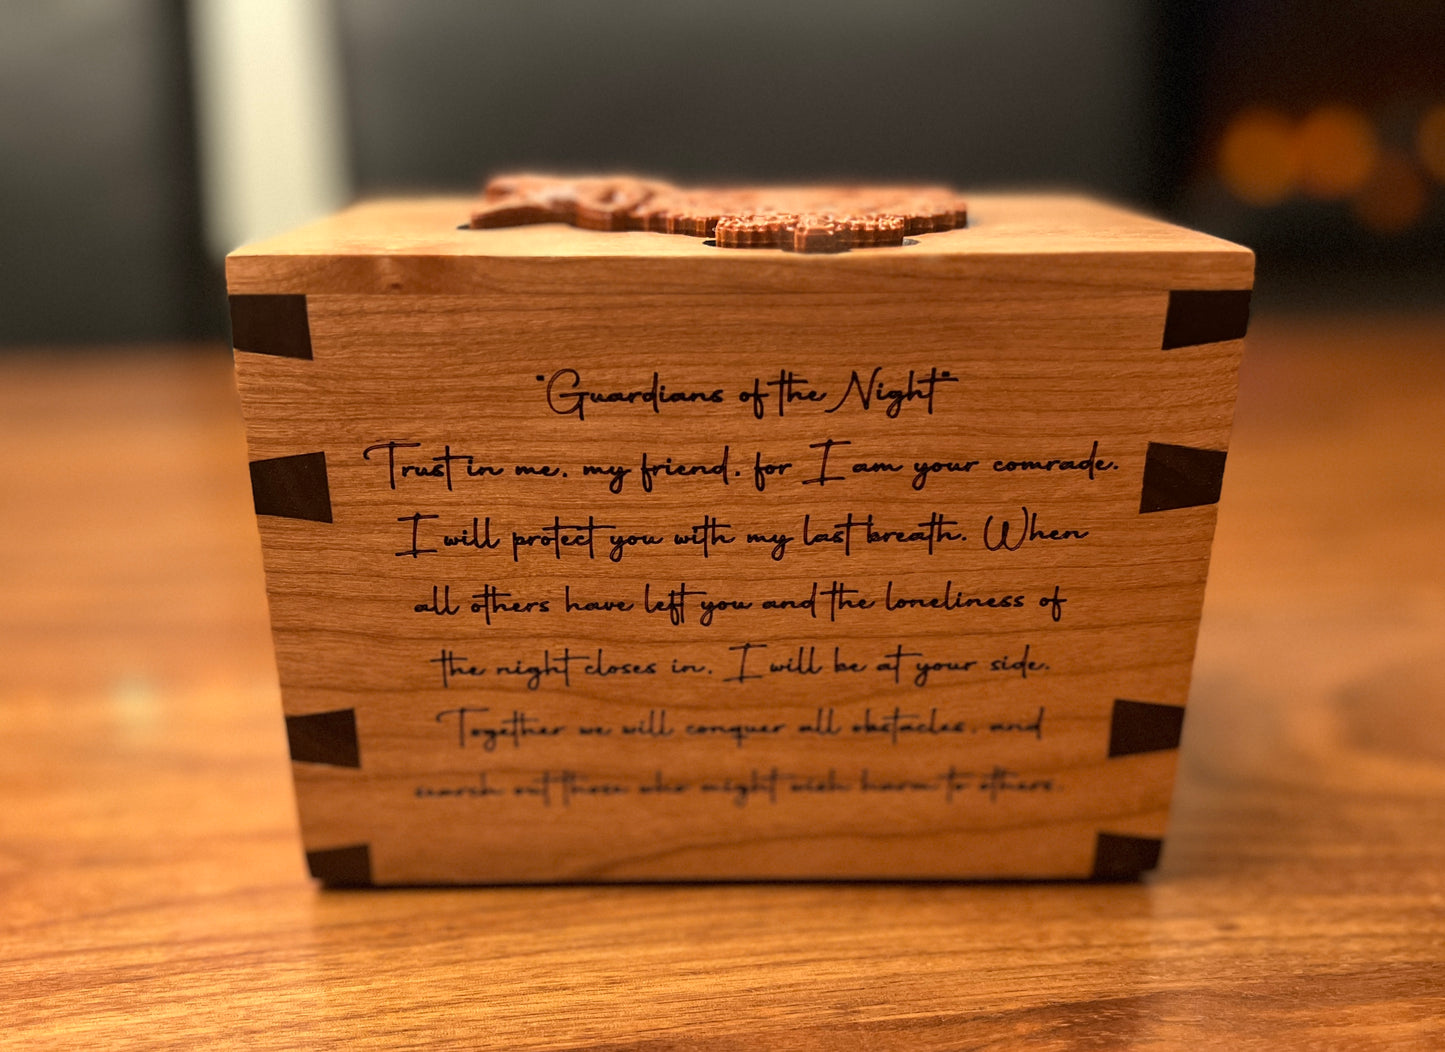 "Guardians of the Night"
Trust in me, my friend, for I am your comrade.
I will protect you with my last breath. When
all others have left you and the loneliness of
the night closes in, I will be at your side.
Together we will conquer all obstacles, and
search out those who might wish harm to others.